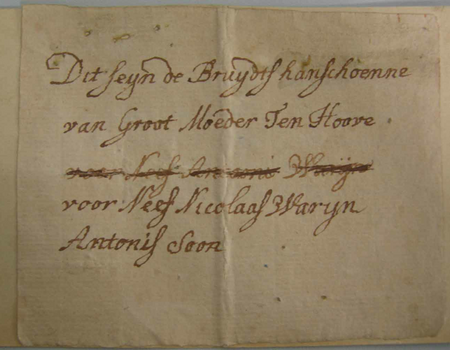 Dit seyn de Bruydts hanschoenne
van Groot Moeder Ten Hoove
voor Neef Antonis Waryn
voor Neef Nicolaas Waryn
Antonis Soon